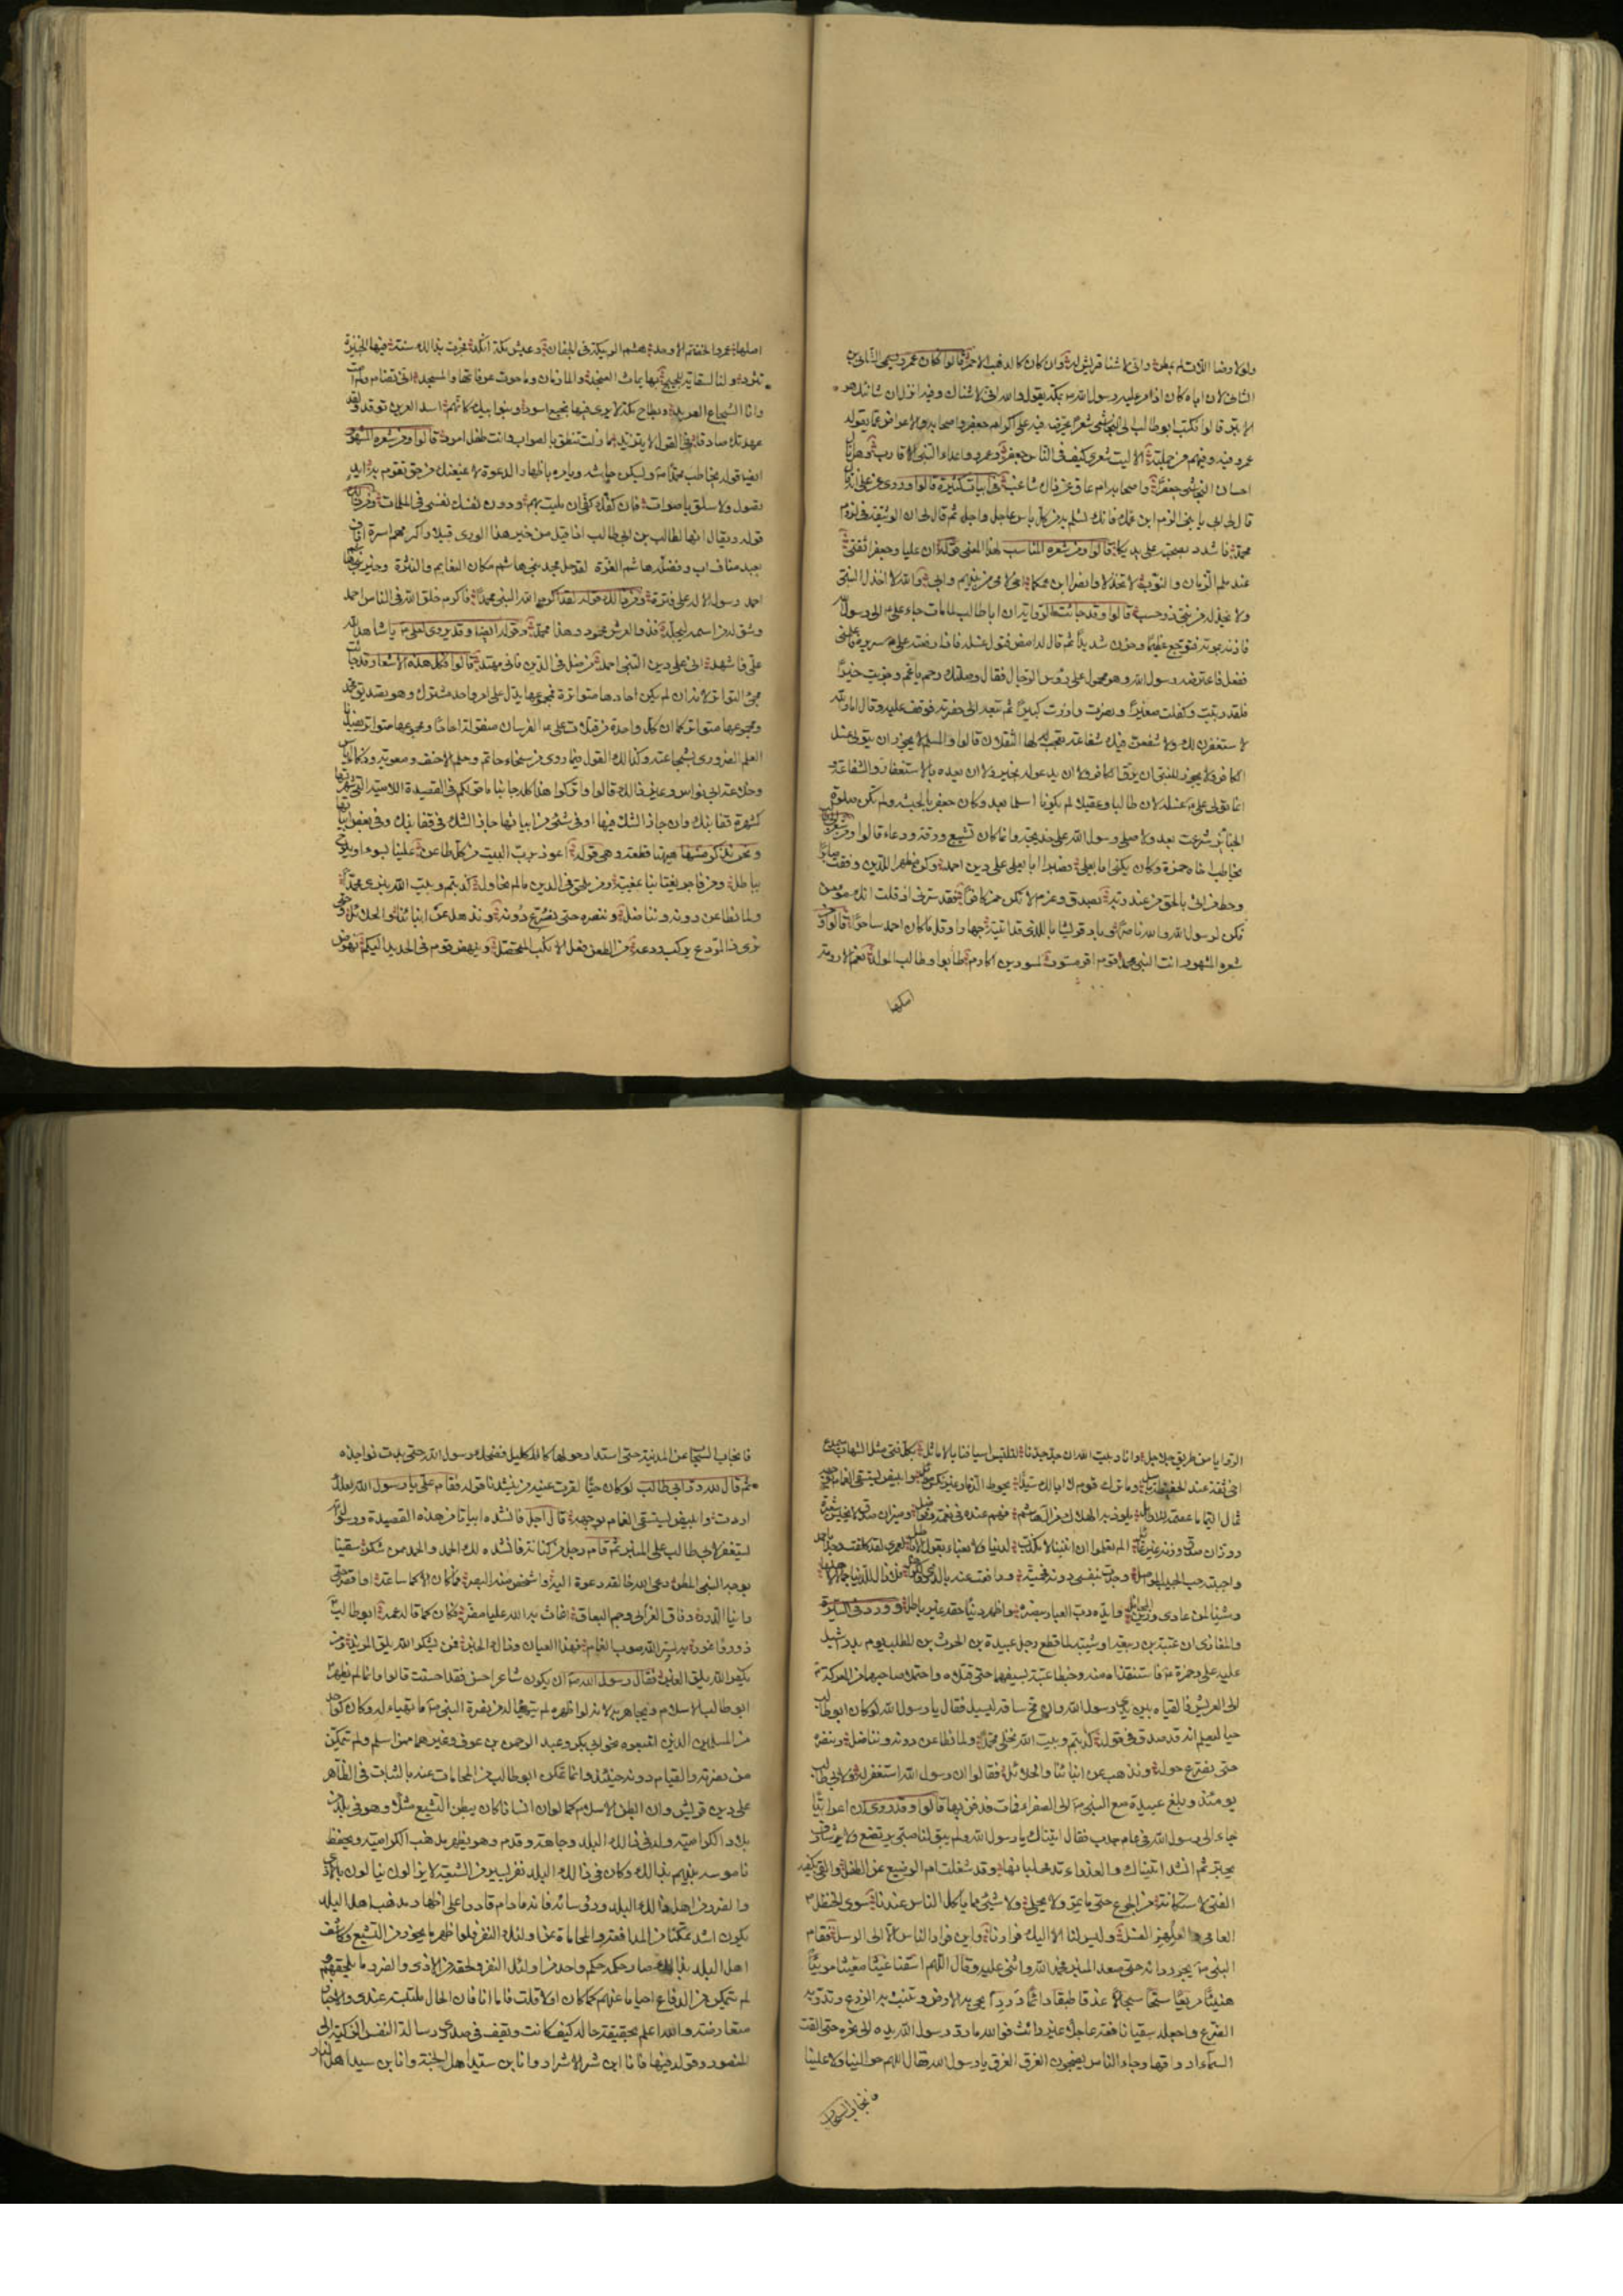 ولولا رضا اللات لم نعطه واني لأشنا قريش له وان كان كالذهب الاحمر قالوا فكان عمرو يسمى الشاني بن
الشاني لان اباه كان اذا مر عليه رسول الله ص بمكة يقول والله اني لاشناك وفيه انزل ان شانئك هو
الابتر قالوا فكتب ابو طالب الى النجاشي شعرا يحرضه فيه على اكرام جعفر واصحابه والاعراض عما يقوله
عمرو فيه وفيهم من جملته الا ليت شعري كيف في الناس جعفر وعمرو واعداء النبي الاقارب وهل نال
احسان النجاشي جعفرا واصحابه ام عاق عن ذاك شاغب في ابيات كثيرة قالوا وروي عن علي انه
قال لي ابي يا بني الزم ابن عمك فانك تسلم به من كل باس عاجل واجل ثم قال لي ان الوثيقة في لزوم
محمد فاشدد بصحبته على يديكا قالوا ومن شعره المناسب لهذا المعنى قوله ان عليا وجعفرا ثقتي
عند ملم الزمان والنوب لا تخذلا وانصرا ابن عمكما اخي لامي من بينهم وابي والله لا اخذل النبي
ولا يخذله من بني ذو حسب قالوا وقد جائت الرواية ان ابا طالب لما مات جاء علي ع الى رسول الله
فاذنه بموته فتوجع عظيما وحزن شديدا ثم قال له امض فتول غسله فاذا رفعته على سريره فاعلمني
ففعل فاعترضه رسول الله وهو محمول على رؤس الرجال فقال وصلتك رحم يا عم وجزيت خيرا
فلقد ربيت وكفلت صغيرا ونصرت وازرت كبيرا ثم تبعه الى حفرته فوقف عليه وقال اما والله
لاستغفرن لك ولا شفعن فيك شفاعة يتعجب لها الثقلان قالوا والمسلم لا يجوز ان يتولى غسل
الكافر ولا يجوز للنبي ان يرق الكافر ولا ان يدعو له بخير ولا ان يعده بالاستغفار والشفاعة
انما تولى علي ع غسله لان طالبا وعقيلا لم يكونا اسلما بعد وكان جعفر بالحبشة ولم تكن صلوة
الجنائز شرعت بعد ولا صلى رسول الله على خديجة وانما كان تشييع ورقة ودعاء قالوا ومن شعره
يخاطب اخاه حمزة وكان يكنى ابا يعلى فصبرا ابا يعلى على دين احمد وكن مظهرا للدين وفقت صابرا
وحط من اتى بالحق من عند ربه بصدق وعزم لا تكن حمز كافرا فقد سرني اذ قلت انك مؤمن
فكن لرسول الله والله ناصرا وباد قريشا بالذي قد اتيته جهارا وقل ما كان احمد ساحرا قالوا ومن
شعره المشهور انت النبي محمد قوم اقر مسود لمسودين اكارم طابوا وطاب المولد نعم الارومة
اصلها
اصلها عمرو الخضم الاوحد هشم الربيكة في الجفان وعيش مكة انكد فجرت بذلك سنة فيها الخبيزة
تثرد ولنا السقاية للحجيج بها يماث العنجد والمازمان وما حوت عرفاتها والمسجد انى تضام ولم امت
وانا الشجاع العربد وبطاح مكة لا يرى فيها نجيع اسود وبنو ابيك كانهم اسد العرين توقد ولقد
عهدتك صادقا في القول لا تتزيد ما زلت تنطق بالصواب وانت طفل امرد قالوا ومن شعره المشهور
ايضا قوله يخاطب محمدا ص ويسكن جاشه ويامره باظهار الدعوة لا يمنعنك من حق تقوم به ايد
تصول ولا سلق باصوات فان كفك كفي ان بليت بهم ودون نفسك نفسي في الملمات ومن ذلك
قوله ويقال انها لطالب بن ابي طالب اذا قيل من خير هذا الورى قبيلا واكرمهم اسرة اناف
بعبد مناف اب وفضله هاشم الغرة لقد حل مجد بني هاشم مكان النعايم والنثرة وخير بني هاشم
احمد رسول الاله على فترة ومن ذلك قوله لقد اكرم الله النبي محمدا فاكرم خلق الله في الناس احمد
وشق له من اسمه ليجله فذو العرش محمود وهذا محمد وقوله ايضا وقد يروى لعلي ع يا شاهد الله
علي فاشهد اني على دين النبي احمد من ضل في الدين فاني مهتد قالوا فكل هذه الاشعار قد جائت
مجئ التواتر لانه ان لم يكن احادها متواترة فمجموعها يدل على امر واحد مشترك وهو تصديق محمد
ومجموعها متواتر كما ان كل واحدة من قتلات علي ع الفرسان منقولة احادا ومجموعها متواتر يفيدنا
العلم الضروري بشجاعته وكذلك القول فيما روى من سخاء حاتم وحلم الاحنف ومعوية وذكاء اياس
وخلاعة ابي نواس وغير ذلك قالوا واتركوا هذا كله جانبا ما قولكم في القصيدة اللامية التي شهرتها
كشهرة قفا نبك وان جاز الشك فيها او في شئ من ابياتها جاز الشك في قفا نبك وفي بعض ابياتها
ونحن نذكر منها هيهنا قطعة وهي قوله اعوذ برب البيت من كل طاعن علينا بسوء او يلوح
بباطل ومن فاجر يغتابنا بمغيبة ومن ملحق في الدين ما لم نحاول كذبتم وبيت الله يبزى محمد
ولما نطاعن دونه ونناضل وننصره حتى نصرع دونه ونذهل عن ابنائنا والحلائل وحتى
نرى ذا الردع يركب ردعه من الطعن فعل الانكب المتحامل وينهض قوم في الحديد اليكم نهوض
الروايا من طريق جلاجل وانا وبيت الله ان جد جدنا لتلتبسن اسيافنا بالاماثل بكل فتى مثل الشهاب سميدع
اخي ثقة عند الحفيظة باسل وما ترك قوم لا ابالك سيدا يحوط الذمار غير نكس مواكل وابيض يستسقى الغمام بوجهه
ثمال اليتامى عصمة للارامل يلوذ به الهلاك من آل هاشم فهم عنده في نعمة وفواضل وميزان صدق لا يخيس شعيرة
ووزان صدق وزنه غير عائل الم تعلموا ان ابننا لا مكذب لدينا ولا يعباء بقول الاباطل لعمري لقد كلفت وجدا باحمد
واحببته حب الحبيب المواصل وجدت بنفسي دونه فحميته ودافعت عنه بالذرى والكواهل فلا زال للدنيا جمالا لاهلها
وشينا لمن عادى وزين المحافل وايده رب العباد بنصره واظهر دينا حقه غير باطل وورد في السيرة
والمغازي ان عتبة بن ربيعة او شيبة لما قطع رجل عبيدة بن الحرث بن المطلب يوم بدر اشبل
عليه علي وحمزة ع فاستنقذاه منه وخبطا عتبة بسيفيهما حتى قتلاه واحتملا صاحبهما من المعركة
الى العريش فالقياه بين يدي رسول الله وان مخ ساقه ليسيل فقال يا رسول الله لو كان ابو طالب
حيا لعلم انه قد صدق في قوله كذبتم وبيت الله نخلى محمدا ولما نطاعن دونه ونناضل وننصره
حتى نصرع حوله ونذهب عن ابنائنا والحلائل فقالوا ان رسول الله استغفر له ولابي طالب
يومئذ وبلغ عبيدة مع النبي ص الى الصفراء فمات فدفن بها قالوا وقد روي ان اعرابيا
جاء الى رسول الله في عام جدب فقال اتيناك يا رسول الله ولم يبق لنا صبي يرتضع ولا شارف
يجتر ثم انشد اتيناك والعذراء تدمى لبانها وقد شغلت ام الرضيع عن الطفل والقى بكفيه
الفتى لاستكانة من الجوع حتى ما يمر ولا يحلي ولا شئ مما ياكل الناس عندنا سوى الحنظل
العامي والعلهز الفسل وليس لنا الا اليك فرارنا واين فرار الناس الا الى الرسل فقام
النبي ص يجر ردائه حتى صعد المنبر فحمد الله واثنى عليه وقال اللهم اسقنا غيثا مغيثا مريئا
هنيئا مريعا سحا سجالا غدقا طبقا دائما دررا تحيي به الارض وتنبت به الزرع وتدر به
الضرع واجعله سقيا نافعة عاجلا غير رائث فوالله ما رد رسول الله يده الى نحره حتى القت
السماء ارواقها وجاء الناس يضجون الغرق الغرق يا رسول الله فقال اللهم حوالينا ولا علينا
فانجاب السحاب
فانجاب السحاب عن المدينة حتى استدار حولها كالاكليل فضحك رسول الله حتى بدت نواجذه
ثم قال لله در ابي طالب لو كان حيا لقرت عينه من ينشدنا قوله فقام علي يا رسول الله لعلك
اردت وابيض يستسقى الغمام بوجهه قال اجل فانشده ابياتا من هذه القصيدة ورسول الله
يستغفر لابي طالب على المنبر ثم قام رجل من كنانة فانشده لك الحمد والحمد ممن شكر سقينا
بوجه النبي المطر دعى الله خالقه دعوة اليه واشخص منه البصر فما كان الا كما ساعة او اقصر حتى
راينا الدرر دفاق العزالى وجم البعاق اغاث به الله عليا مضر فكان كما قاله عمه ابو طالب
ذو رواء غرر به يسر الله صوب الغمام فهذا العيان وذاك الخبر فمن يشكر الله يلق المزيد ومن
يكفر الله يلق الغير فقال رسول الله ص ان يكون شاعر احسن فقد احسنت قالوا وانما لم يظهر
ابو طالب الاسلام ويجاهر به لانه لو اظهره لم يتهيأ له من نصرة النبي ص ما تهياء له وكان كواحد
من المسلمين الذين اتبعوه نحو ابي بكر وعبد الرحمن بن عوف وغيرهما ممن اسلم ولم يتمكن
من نصرته والقيام دونه حينئذ وانما تمكن ابو طالب من المحامات عنه بالثبات في الظاهر
على دين قريش وان ابطن الاسلام كما لو ان انسانا كان يبطن التشيع مثلا وهو في بلد من
بلاد الكرامية وله في ذلك البلد وجاهة وقدم وهو يظهر مذهب الكرامية ويحفظ
ناموسه بينهم بذلك وكان في ذلك البلد نفر يسير من الشيعة لا يزالون ينالون بالاذى
والضرر من اهل ذلك البلد ورؤسائه فانه ما دام قادرا على اظهار مذهب اهل البلد
يكون اشد تمكنا من المدافعة والمحاماة عن اولئك النفر فلو اظهر ما يجوز من التشيع وكاشف
اهل البلد بذلك صار حكمه حكم واحد من اولئك النفر ولحقه من الاذى والضرر ما يلحقهم و
لم يتمكن من الدفاع احيانا عنهم كما كان اولا قلت فاما انا فان الحال ملتبسة عندي والاخبار
متعارضة والله اعلم بحقيقة حاله كيف كانت ويقف في صدري رسالة النفس الزكية الى
المنصور وقوله فيها فانا ابن شر الاشرار وانا ابن سيد اهل الجنة وانا بن سيد اهل النار